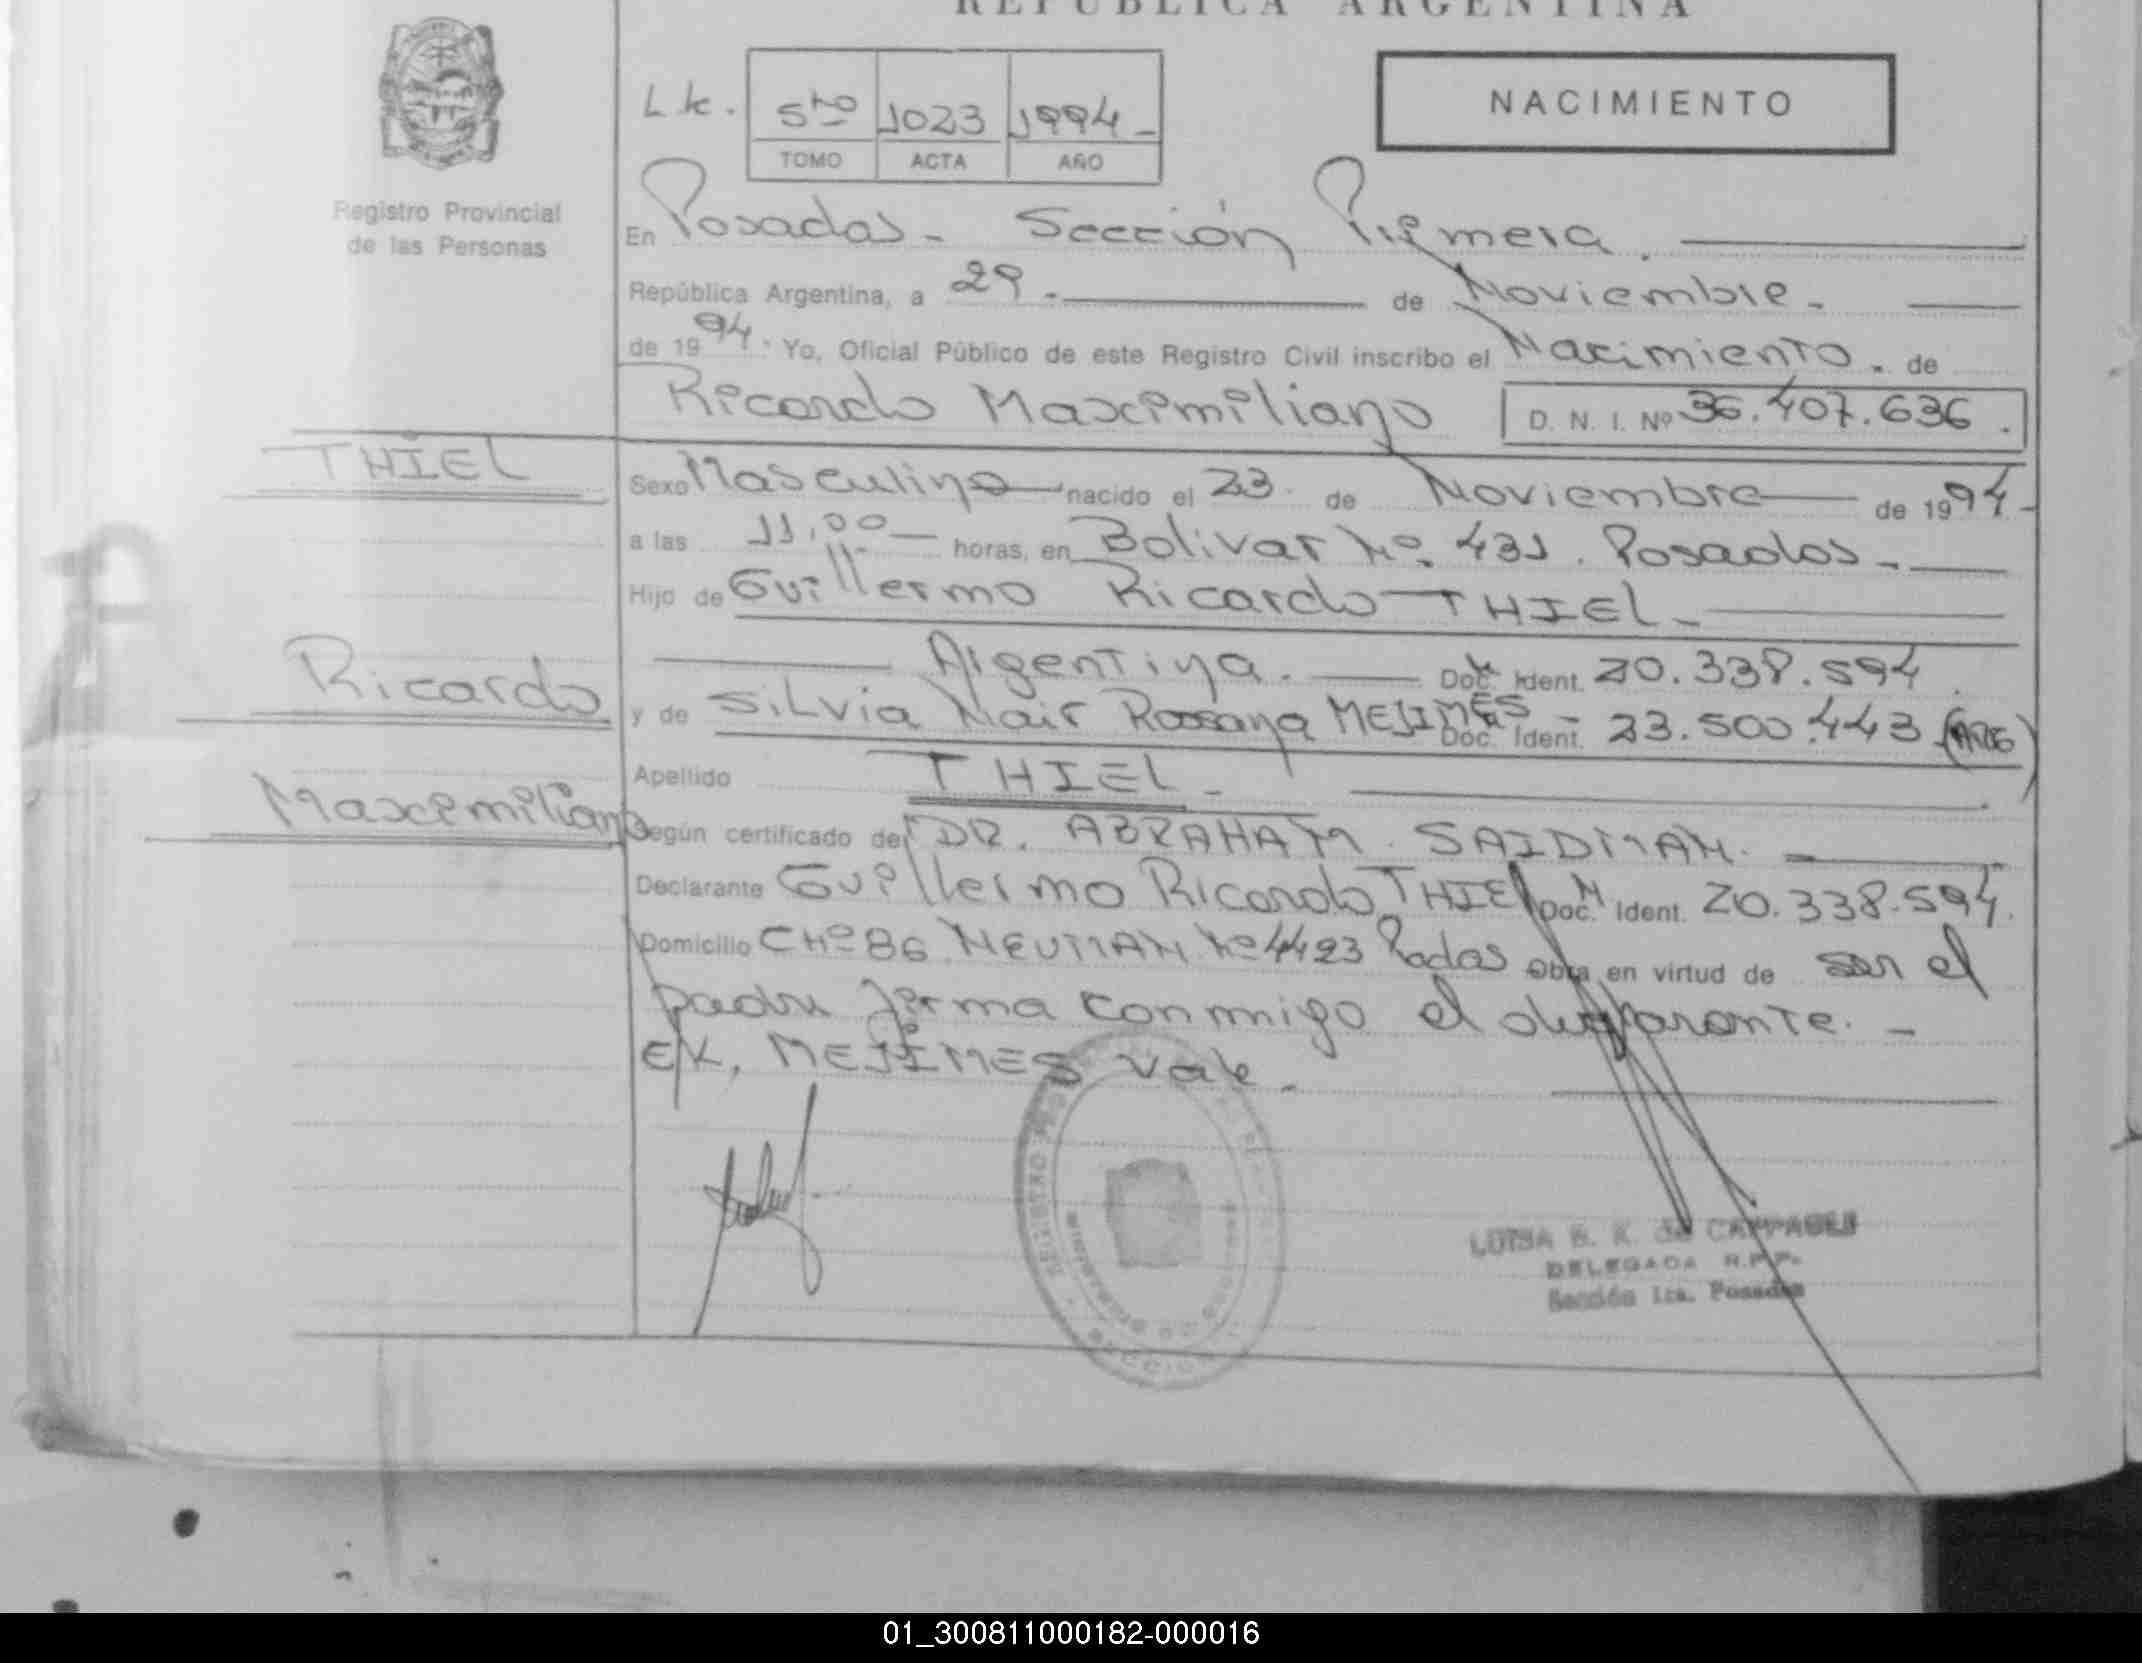 REPUBLICA ARGENTINA
Registro Provincial
de las Personas
5to 1023 1994
TOMO ACTA AÑO
NACIMIENTO
En Posadas - Sección Primera.
República Argentina, a 29. de Noviembre.
de 1994. Yo, Oficial Público de este Registro Civil inscribo el Nacimiento. de
Ricardo Maximiliano D. N. I. Nº 36.407.636.
THIEL
Ricardo
Maximiliano
Sexo Masculino nacido el 23. de Noviembre de 1994-
a las 11,00 horas, en Bolivar Nº. 431. Posadas-
Hijo de Guillermo Ricardo THIEL-
Argentina. Doc. Ident. 20.338.594
y de Silvia Nair Rossana Doc. Ident. 23.500.443 (ARG)
Apellido THIEL-
Según certificado de DR. ABRAHAM SAIDMAN.
Declarante Guillermo Ricardo THIEL Doc. Ident. 20.338.594.
Domicilio CHº 86 Nº 4423 Obra en virtud de ser el
padre firma conmigo el declarante.-
Vale.
LUISA B. K. de
DELEGADA R.P.P.
Sección 1ra. Posadas
01_300811000182-000016